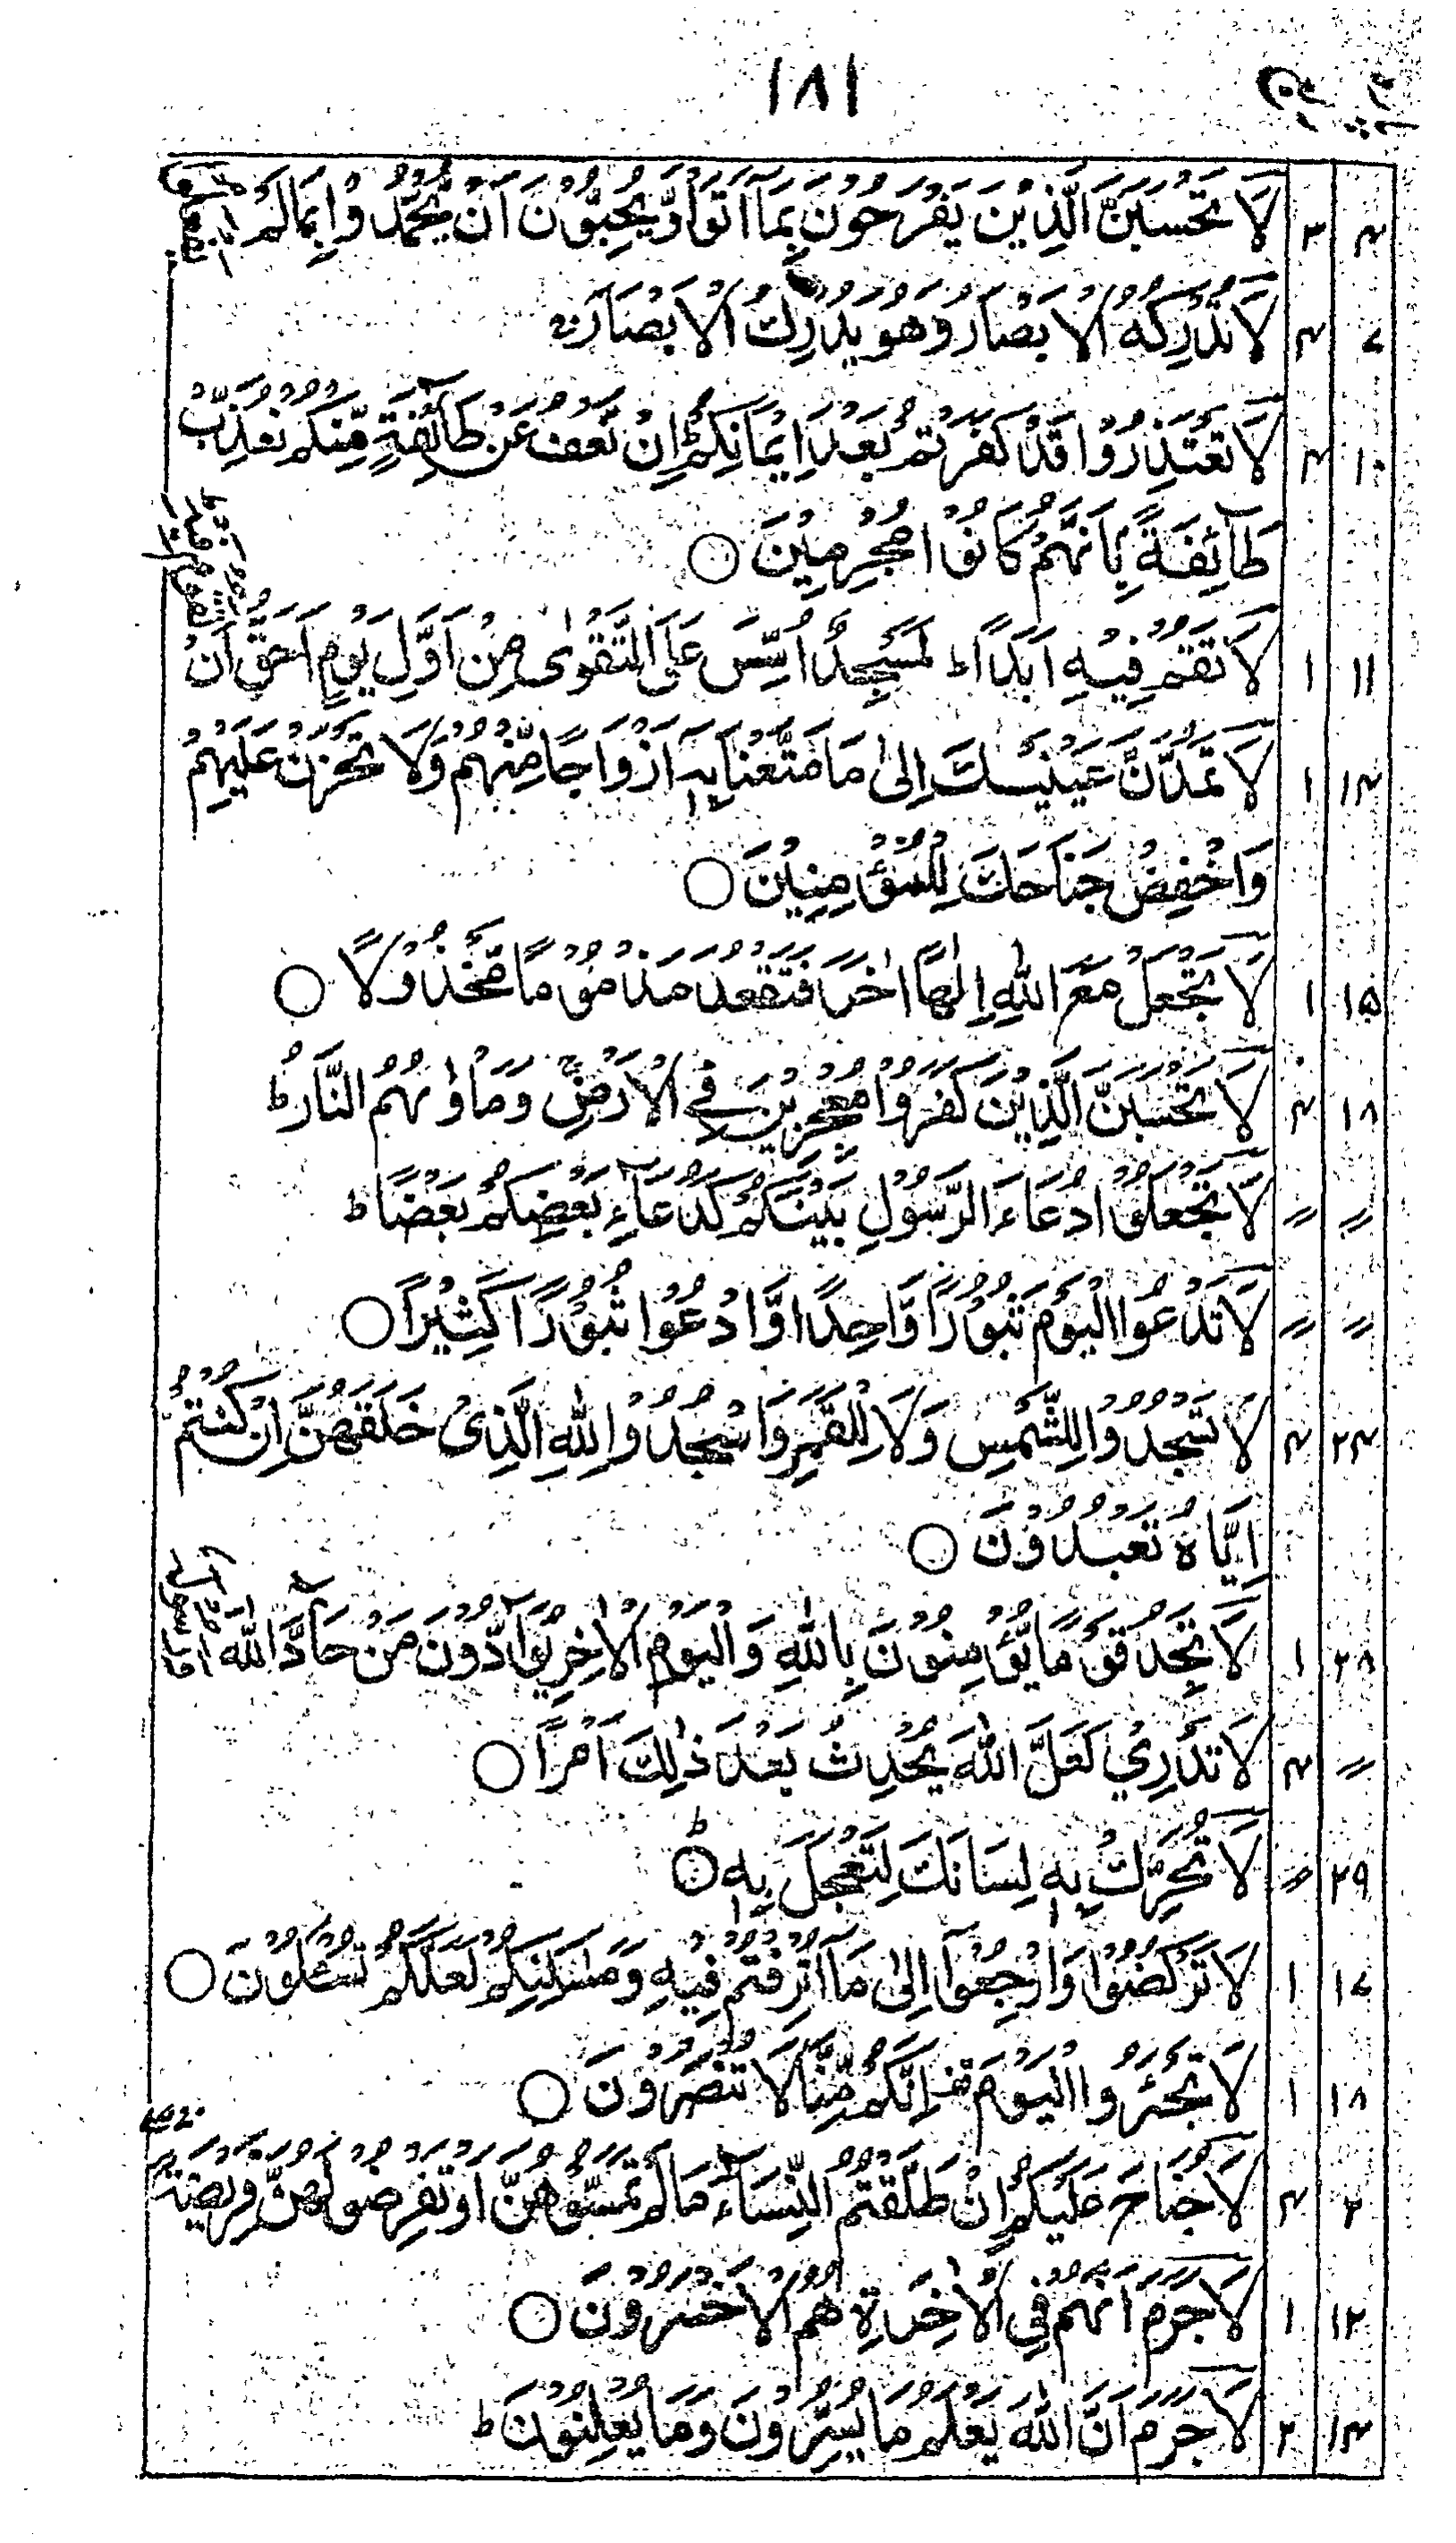 ۱۸۱
۴ ۳ لَا تَحْسَبَنَّ الَّذِيْنَ يَفْرَحُوْنَ بِمَآ اَتَوْا وَّيُحِبُّوْنَ اَنْ يُّحْمَدُوْا بِمَا لَمْ
۷ ۴ لَا تُدْرِكُهُ الْاَبْصَارُ وَهُوَ يُدْرِكُ الْاَبْصَارَ
۱۰ ۴ لَا تَعْتَذِرُوْا قَدْ كَفَرْتُمْ بَعْدَ اِيْمَانِكُمْ ؕ اِنْ نَّعْفُ عَنْ طَآئِفَةٍ مِّنْكُمْ نُعَذِّبْ
طَآئِفَةًۢ بِاَنَّهُمْ كَانُوْا مُجْرِمِيْنَ ○
۱۱ ۱ لَا تَقُمْ فِيْهِ اَبَدًا ؕ لَمَسْجِدٌ اُسِّسَ عَلَى التَّقْوٰى مِنْ اَوَّلِ يَوْمٍ اَحَقُّ اَنْ تَقُوْمَ فِيْهِ
۱۴ ۱ لَا تَمُدَّنَّ عَيْنَيْكَ اِلٰى مَا مَتَّعْنَا بِهٖٓ اَزْوَاجًا مِّنْهُمْ وَلَا تَحْزَنْ عَلَيْهِمْ
وَاخْفِضْ جَنَاحَكَ لِلْمُؤْمِنِيْنَ ○
۱۵ ۱ لَا تَجْعَلْ مَعَ اللّٰهِ اِلٰهًا اٰخَرَ فَتَقْعُدَ مَذْمُوْمًا مَّخْذُوْلًا ○
۱۸ ۴ لَا تَحْسَبَنَّ الَّذِيْنَ كَفَرُوْا مُعْجِزِيْنَ فِي الْاَرْضِ ۚ وَمَاْوٰىهُمُ النَّارُ ؕ
〃 〃 لَا تَجْعَلُوْا دُعَآءَ الرَّسُوْلِ بَيْنَكُمْ كَدُعَآءِ بَعْضِكُمْ بَعْضًا ؕ
〃 〃 لَا تَدْعُوا الْيَوْمَ ثُبُوْرًا وَّاحِدًا وَّادْعُوْا ثُبُوْرًا كَثِيْرًا ○
۲۴ ۴ لَا تَسْجُدُوْا لِلشَّمْسِ وَلَا لِلْقَمَرِ وَاسْجُدُوْا لِلّٰهِ الَّذِيْ خَلَقَهُنَّ اِنْ كُنْتُمْ
اِيَّاهُ تَعْبُدُوْنَ ○
۲۸ ۱ لَا تَجِدُ قَوْمًا يُّؤْمِنُوْنَ بِاللّٰهِ وَالْيَوْمِ الْاٰخِرِ يُوَآدُّوْنَ مَنْ حَآدَّ اللّٰهَ وَرَسُوْلَهٗ
〃 ۴ لَا تَدْرِيْ لَعَلَّ اللّٰهَ يُحْدِثُ بَعْدَ ذٰلِكَ اَمْرًا ○
۲۹ 〃 لَا تُحَرِّكْ بِهٖ لِسَانَكَ لِتَعْجَلَ بِهٖ ؕ○
۱۷ ۱ لَا تَرْكُضُوْا وَارْجِعُوْٓا اِلٰى مَآ اُتْرِفْتُمْ فِيْهِ وَمَسٰكِنِكُمْ لَعَلَّكُمْ تُسْئَلُوْنَ ○
۱۸ ۱ لَا تَجْئَرُوا الْيَوْمَ اِنَّكُمْ مِّنَّا لَا تُنْصَرُوْنَ ○
۲ ۴ لَا جُنَاحَ عَلَيْكُمْ اِنْ طَلَّقْتُمُ النِّسَآءَ مَا لَمْ تَمَسُّوْهُنَّ اَوْ تَفْرِضُوْا لَهُنَّ فَرِيْضَةً
۱۲ ۱ لَا جَرَمَ اَنَّهُمْ فِي الْاٰخِرَةِ هُمُ الْاَخْسَرُوْنَ ○
۱۴ ۲ لَا جَرَمَ اَنَّ اللّٰهَ يَعْلَمُ مَا يُسِرُّوْنَ وَمَا يُعْلِنُوْنَ ؕ